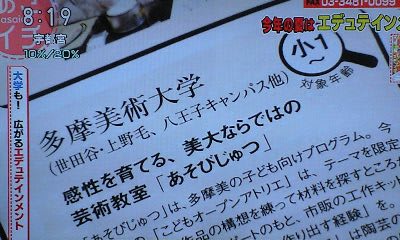 8:19
宇都宮
10%/20%
FAX 03-3481-0099
今年の夏は エデュテイン
大学も! 広がるエデュテインメント
小1～
対象年齢
多摩美術大学
(世田谷・上野毛、八王子キャンパス他)
感性を育てる、美大ならではの
芸術教室「あそびじゅつ」
「あそびじゅつ」は、多摩美の子ども向けプログラム。今
「こどもオープンアトリエ」は、テーマを限定
作品の構想を練って材料を探すところか
ートのもと、市販の工作キッ
作り出す経験」を。
は陶芸の